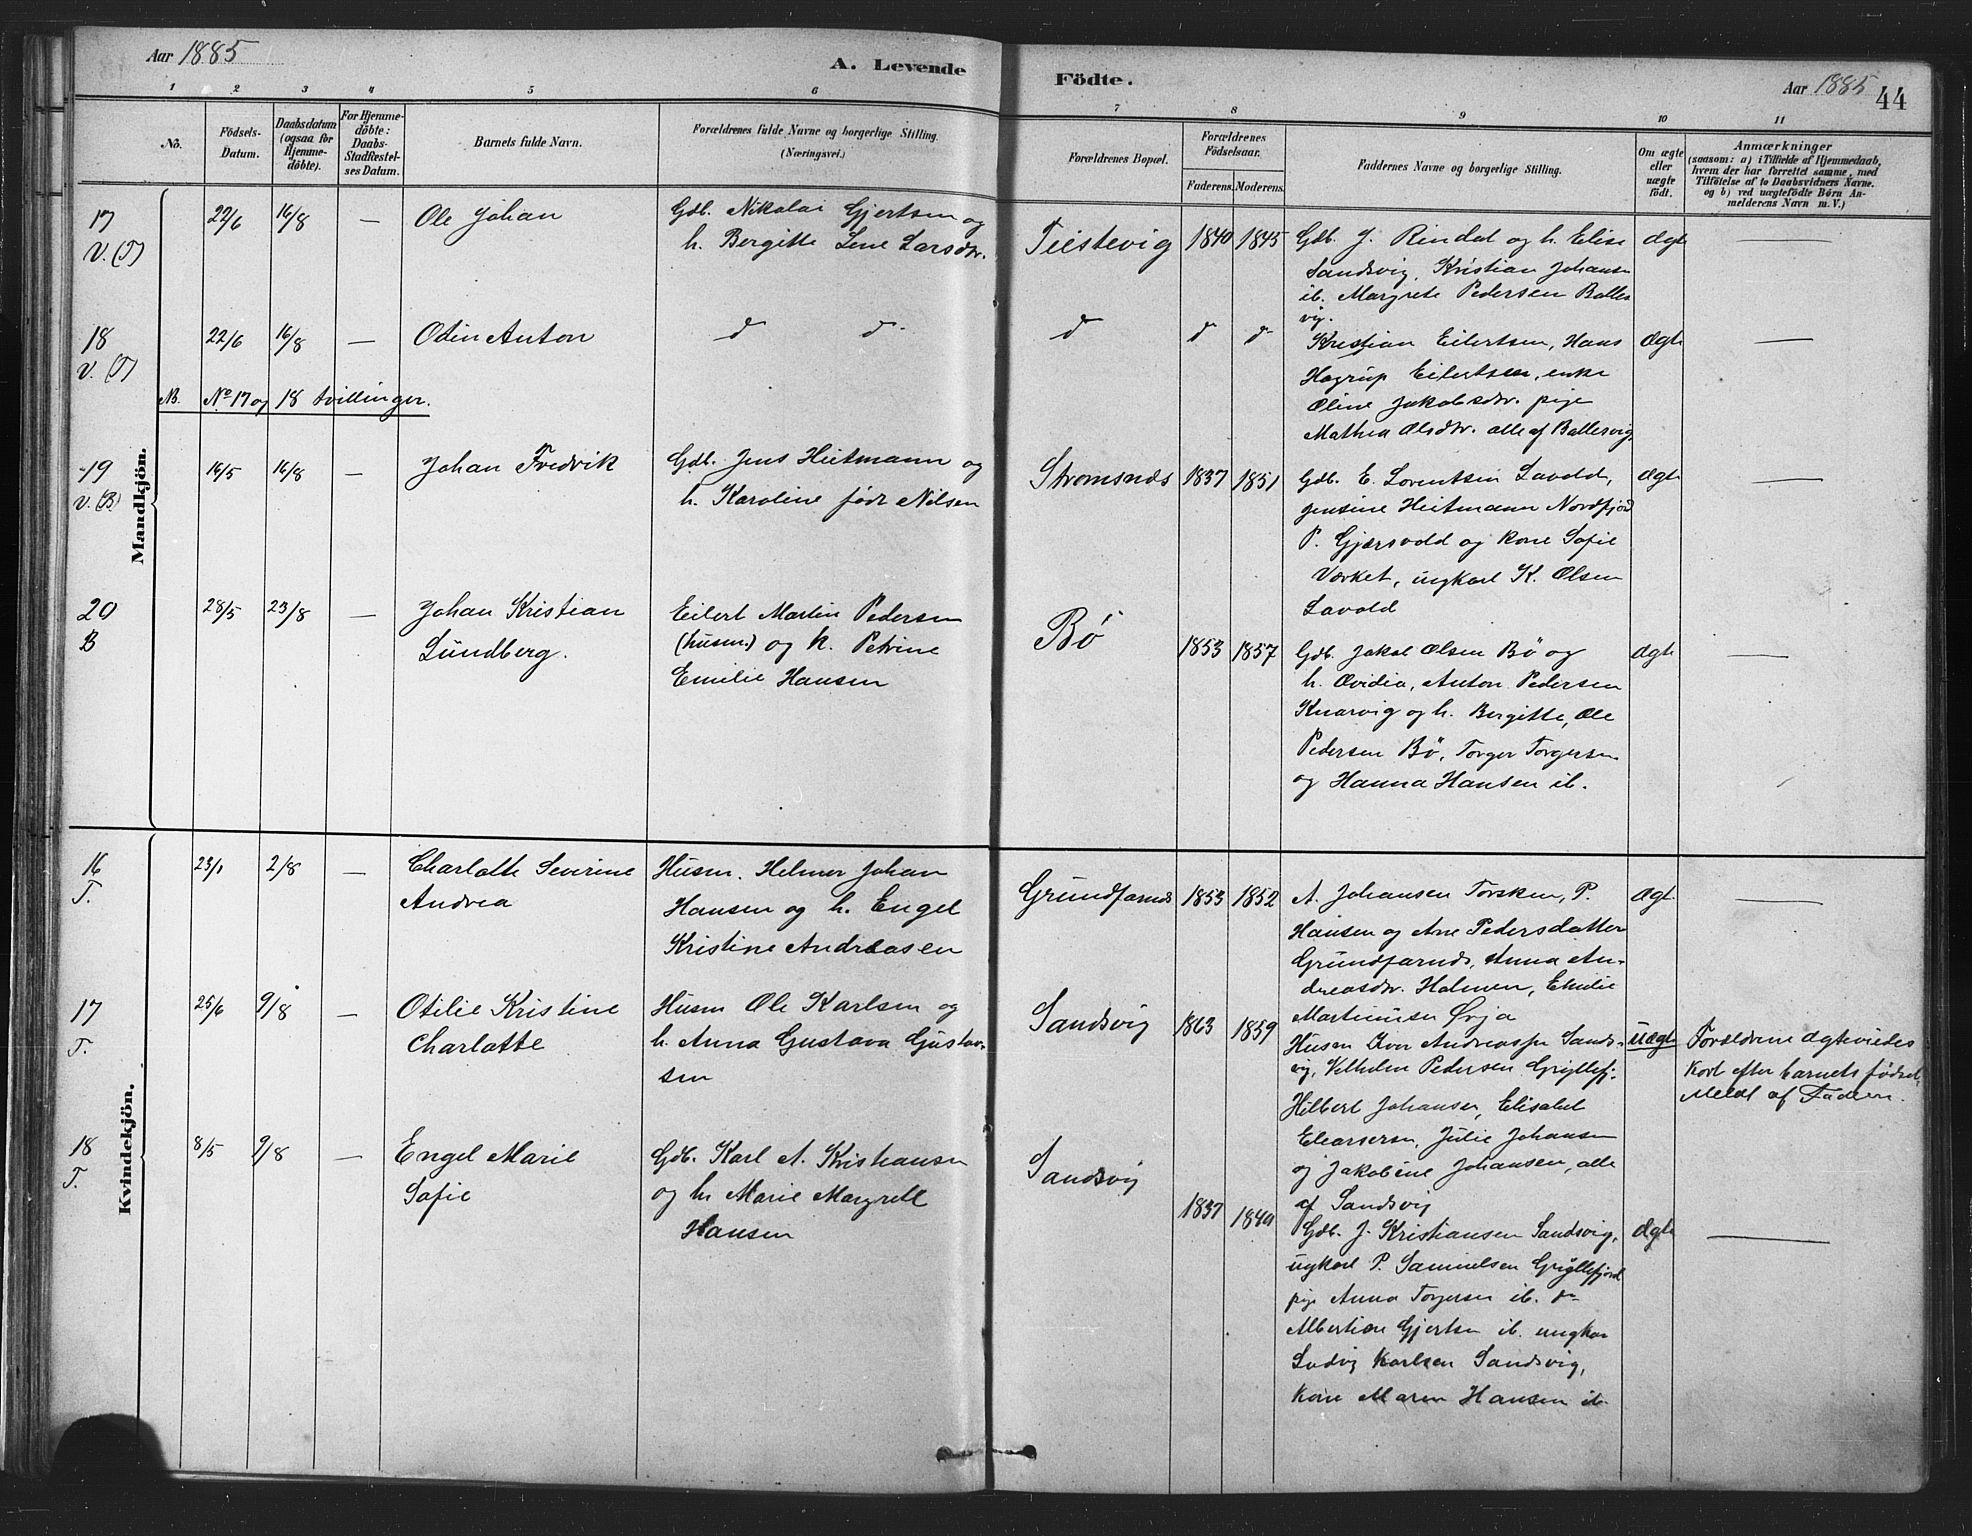 Aar 1885
A. Levende
Födte.
Aar 1885
44
1 2 3 4 5 6 7 8 9 10 11
No.
Födsels-Datum.
Daabsdatum (ogsaa for Hjemmedöbte).
For Hjemmedöbte: Daabs-Stadfestelses Datum.
Barnets fulde Navn.
Forældrenes fulde Navne og borgerlige Stilling.
(Næringsvei.)
Forældrenes Bopæl.
Forældrenes Födselsaar.
Faderens. Moderens.
Faddernes Navne og borgerlige Stilling.
Om ægte eller uægte födt.
Anmærkninger
(saasom: a) i Tilfælde af Hjemmedaab,
hvem der har forrettet samme, med
Tilföielse af to Daabsvidners Navne.
og b) ved uægtefödte Börn An-
melderens Navn m. V.)
Mandkjön.
17
V. (T)
22/6
16/8
—
Ole Johan
Gdb. Nikolai Gjertsen og
h. Bergitte Lene Larsdtr.
Teistevig
1840
1845
Gdb. J. Rindal og h. Elise
Sandsvig, Kristian Johansen
ib. Margrete Pedersen Balles
vig.
ægte
—
18
V. (T)
22/6
16/8
—
Odin Anton
d d
d
d
d
Kristian Eilertsen, Hans
Hagrup Eilertsen, enke
Oline Jakobsdtr. pige
Mathea Olsdtr. alle af Ballesvig
ægte
—
NB. No 17 og 18 tvillinger.
19
V. (B)
16/5
16/8
—
Johan Fredrik
Gdb. Jens Heitmann og
h. Karoline født Nilsen
Stromsnds
1837
1851
Gdb. E. Lorentsen Lavold,
Jensine Heitmann Nordfjord
P. Gjærsvold og kone Sofie
Værket, ungkarl K. Olsen
Lavold
ægte
—
20
B
28/5
23/8
—
Johan Kristian
Lundberg.
Eilert Martin Pedersen
(husm.) og h. Petrine
Emilie Hansen
Bø
1853
1857
Gdb. Jakob Olsen Bø og
h. Ovidia, Anton Pedersen
Knarvig og h. Bergitte, Ole
Pedersen Bö, Torger Torgersen
og Hanna Hansen ib.
ægte
—
Kvindekjön.
16
T.
23/1
2/8
—
Charlotte Severine
Andrea
Husm. Helmer Johan
Hansen og h. Engel
Kristine Andreasen
Grundfarnds
1853
1852
A. Johansen Torsken, P.
Hansen og Ane Pedersdatter
Grundfarnds, Anna An-
dreasdtr. Holmen, Emilie
Martinusen Øvja
ægt.
—
17
T.
25/6
9/8
—
Otilie Kristine
Charlotte
Husm Ole Karlsen og
h. Anna Gustava Gustav-
sen
Sandsvig
1863
1859
Husm Iver Andreassen Sands-
vig, Vilhelm Pedersen Gryllefj.
Hilbert Johansen, Elisabet
Elearsersen, Julie Johansen
og Jakobine Johansen, alle
af Sandsvig
uægte
Forældrene ægteviedes
kort efter barnets fødsel,
Meldt af Faderen.
18
T.
8/5
9/8
—
Engel Marie
Sofie
Gdb. Karl A. Kristiansen
og h. Marie Margrete
Hansen
Sandsvig
1837
1840
Gdb. J. Kristiansen Sandsvig,
ungkarl P. Samuelsen Gryllefjord
pige Anna Torgersen ib. do
Albertine Gjertsen ib. ungkar
Ludvig Karlsen Sandsvig,
kone Maren Hansen ib.
ægte
—